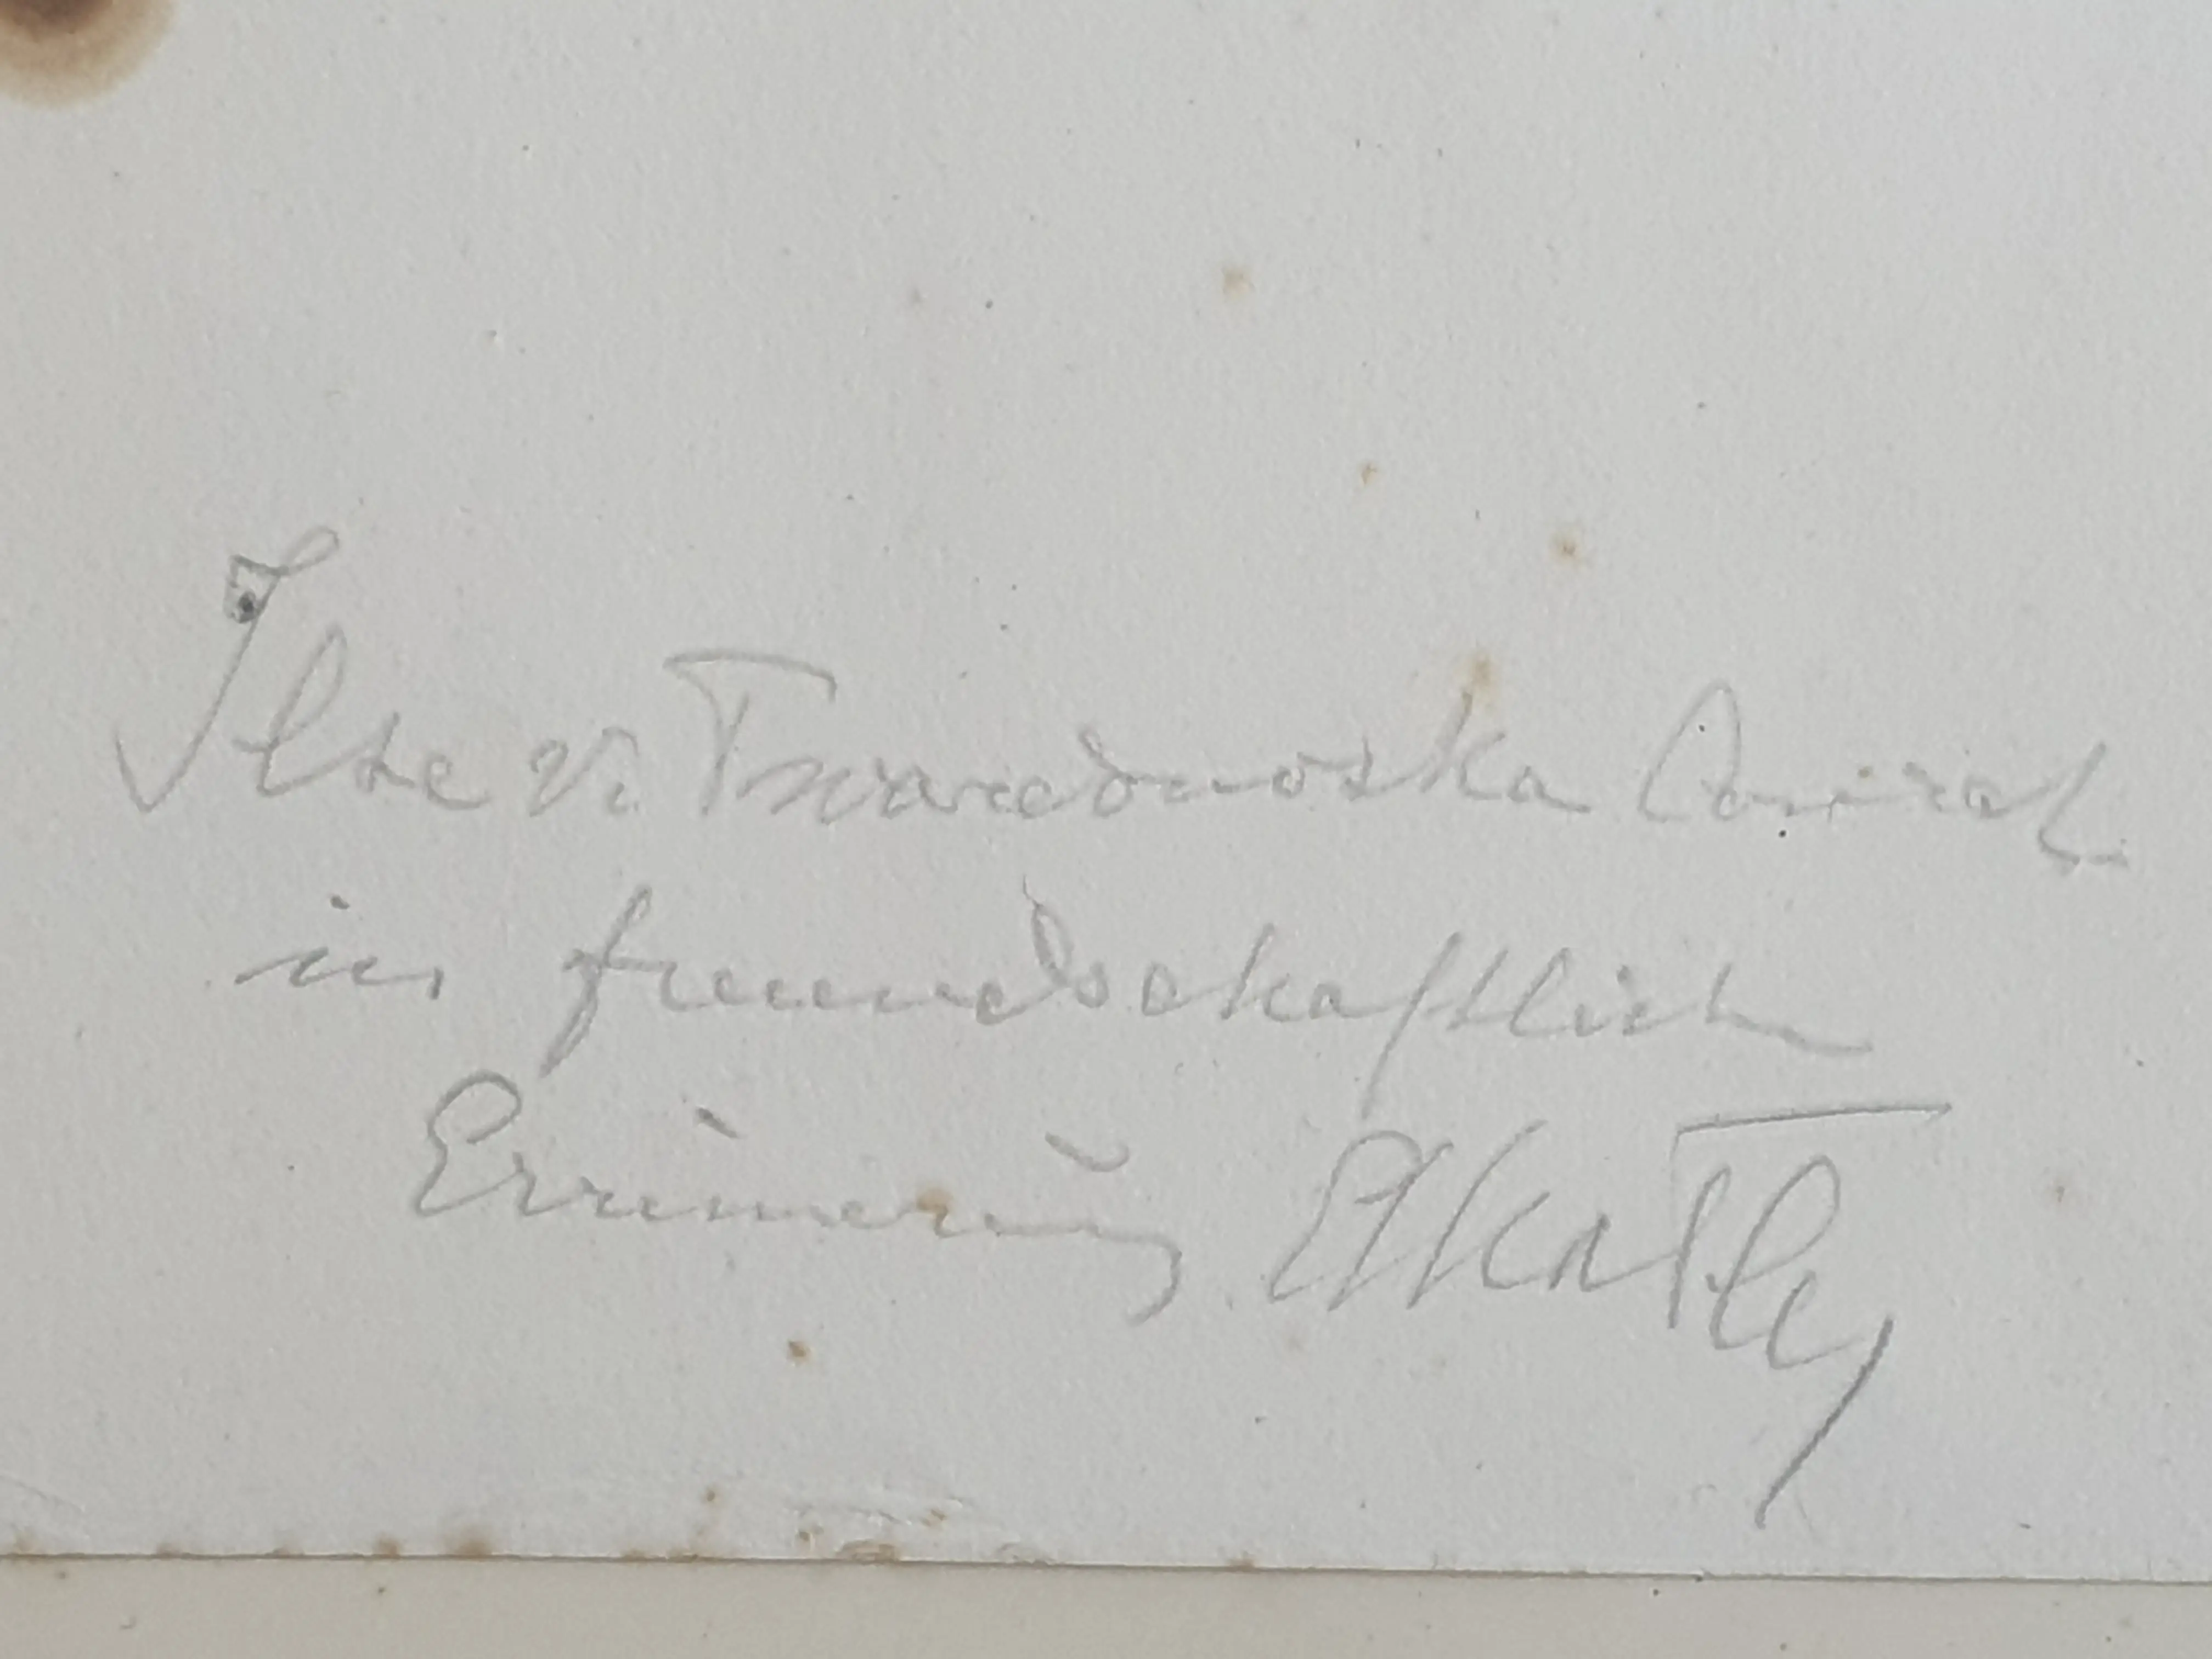 Ilse v. Twardowska Conrat
in freundschaftlich
Erinnerung